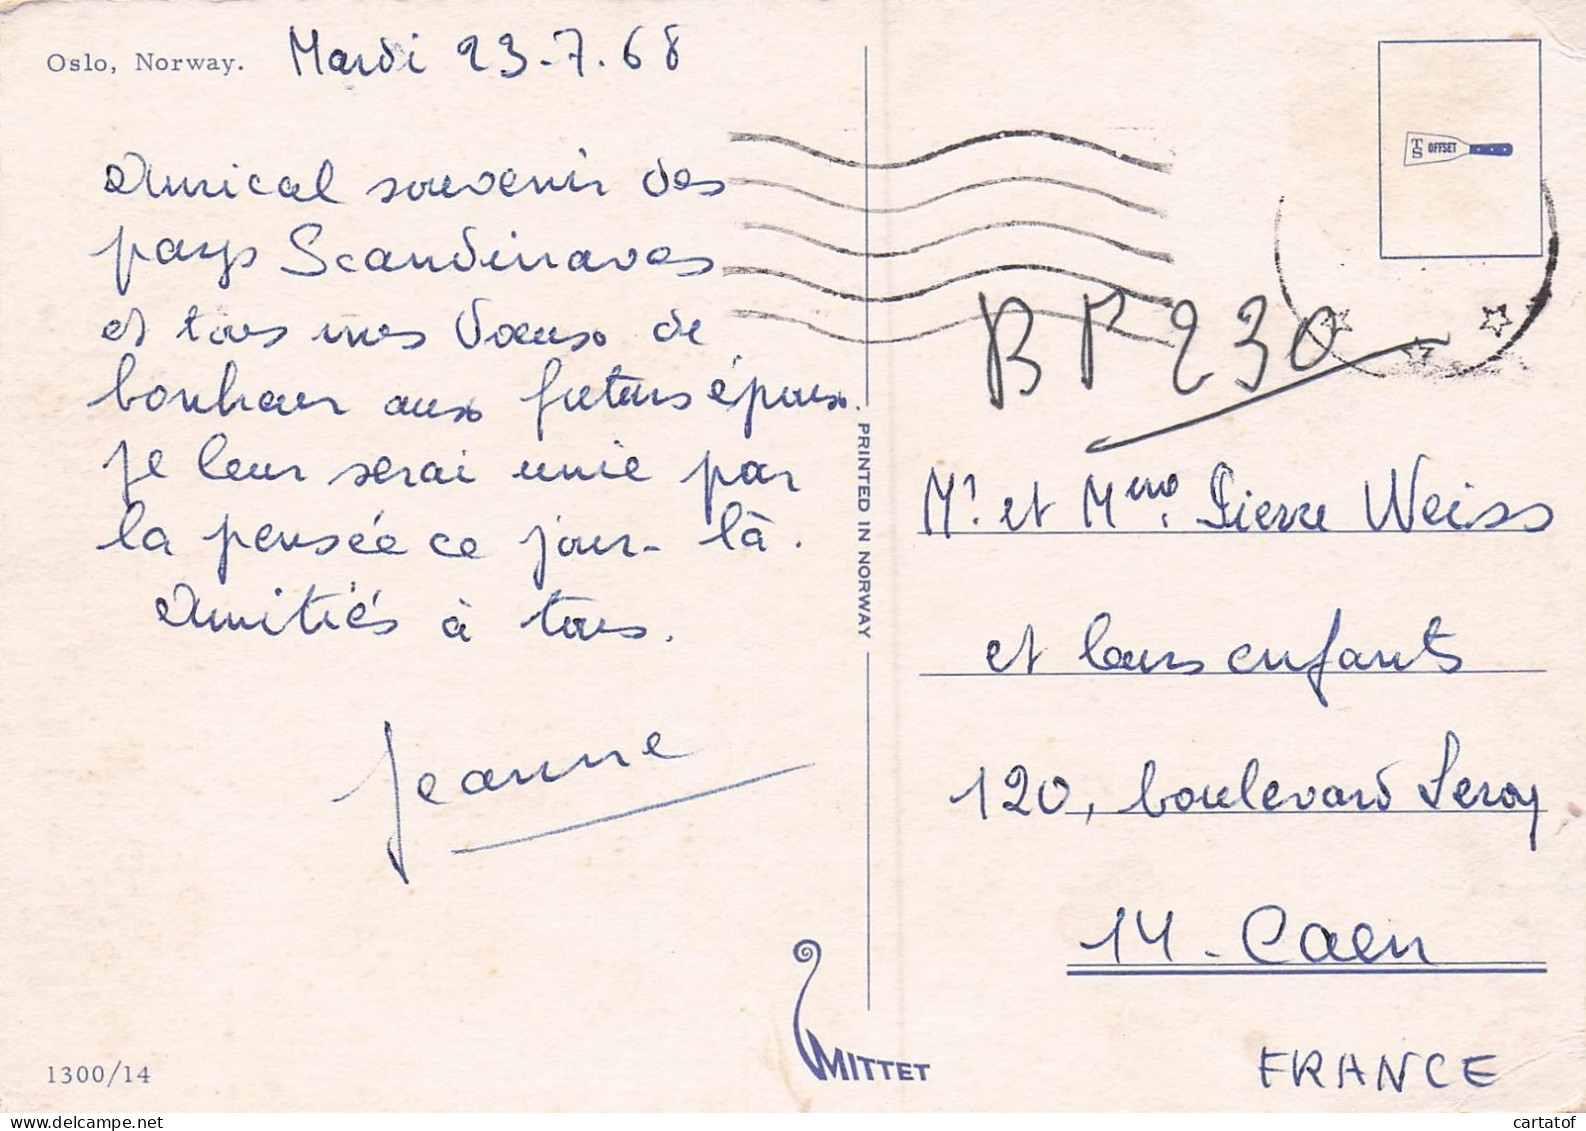 Oslo, Norway. Mardi 23.7.68
Amical souvenir des
pays Scandinaves
et tous mes voeux de
bonheur aux futurs époux.
je leur serai unie par
la pensée ce jour-là.
Amitiés à tous.
Jeanne
1300/14
PRINTED IN NORWAY
MITTET
TS OFFSET
BP 230
Mr. et Mme. Pierre Weiss
et leurs enfants
120, boulevard Leroy
14 - Caen
FRANCE
www.cartatoo.net
cartatof